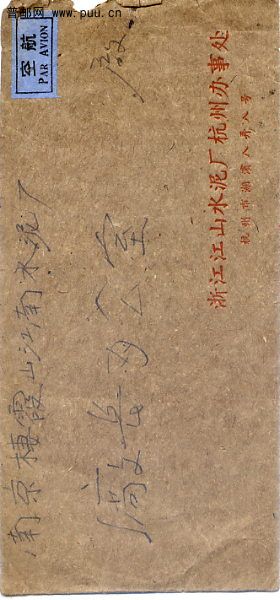 普邮网 www.puu.cn
航空
PAR AVION
南京棲霞山江南水泥厂
廠長办公室
啟
浙江江山水泥厂杭州办事处
杭州市湖滨八弄八号